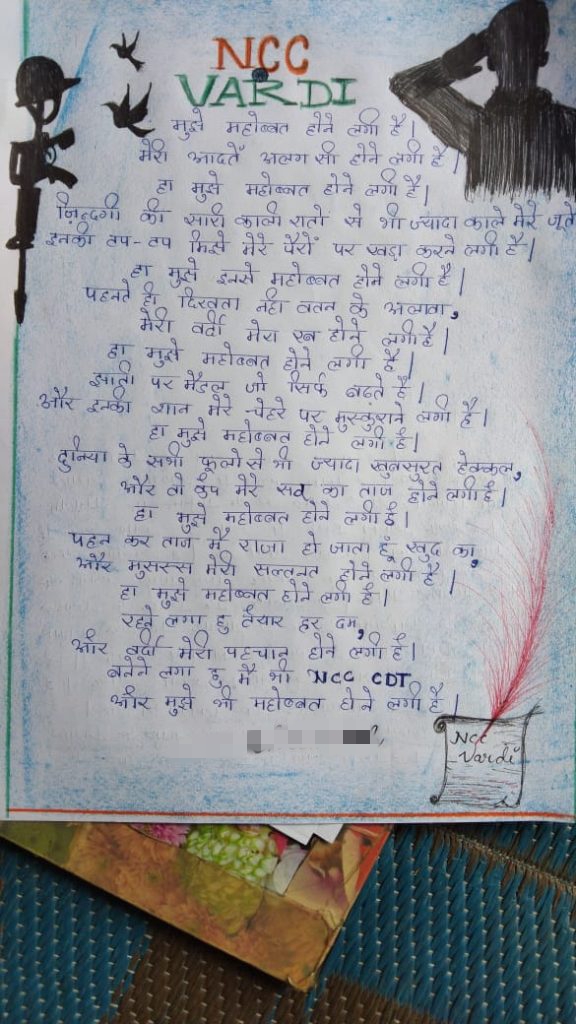 NCC
VARDI
मुझे महोब्बत होने लगी है।
मेरी आदतें अलग सी होने लगी है।
हा मुझे महोब्बत होने लगी है।
जिन्दगी की सारी काली रातों से भी ज्यादा काले मेरे जूते
इनकी टप-टप मिझे मेरे पैरों पर खड़ा करने लगी है।
हा मुझे इनसे महोब्बत होने लगी है।
पहनते ही दिखता नहा वतन के अलावा,
मेरी वर्दी मेरा रब होने लगी है।
हा मुझे महोब्बत होने लगी है।
छाती पर मैडल जो सिर्फ बढ़ते है।
और इनकी शान मेरे चेहरे पर मुस्कुराने लगी है।
हा मुझे महोब्बत होने लगी है।
दुनिया के सभी फूलो से भी ज्यादा खुबसुरत हेक्कल,
और वो कैप मेरे सर का ताज होने लगी है।
हा मुझे महोब्बत होने लगी है।
पहन कर ताज मै राजा हो जाता हूं खुद का,
और मेरी सल्तनत होने लगी है।
हा मुझे महोब्बत होने लगी है।
रहने लगा हु तैयार हर दम,
और वर्दी मेरी पहचान होने लगी है।
बनेने लगा हु मै भी NCC CDT
और मुझे भी महोब्बत होने लगी है।
NCC
Vardi